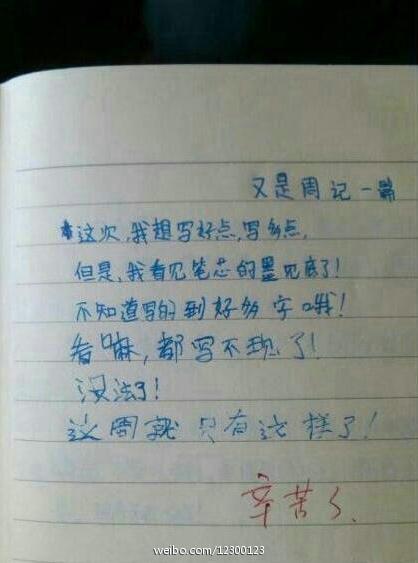 又是周记一篇
这次,我想写好点,写多点,
但是,我看见笔芯的墨见底了!
不知道写的到好多字哦!
看嘛,都写不现了!
没法了!
这周就只有这样了!
辛苦了、
weibo.com/12300123